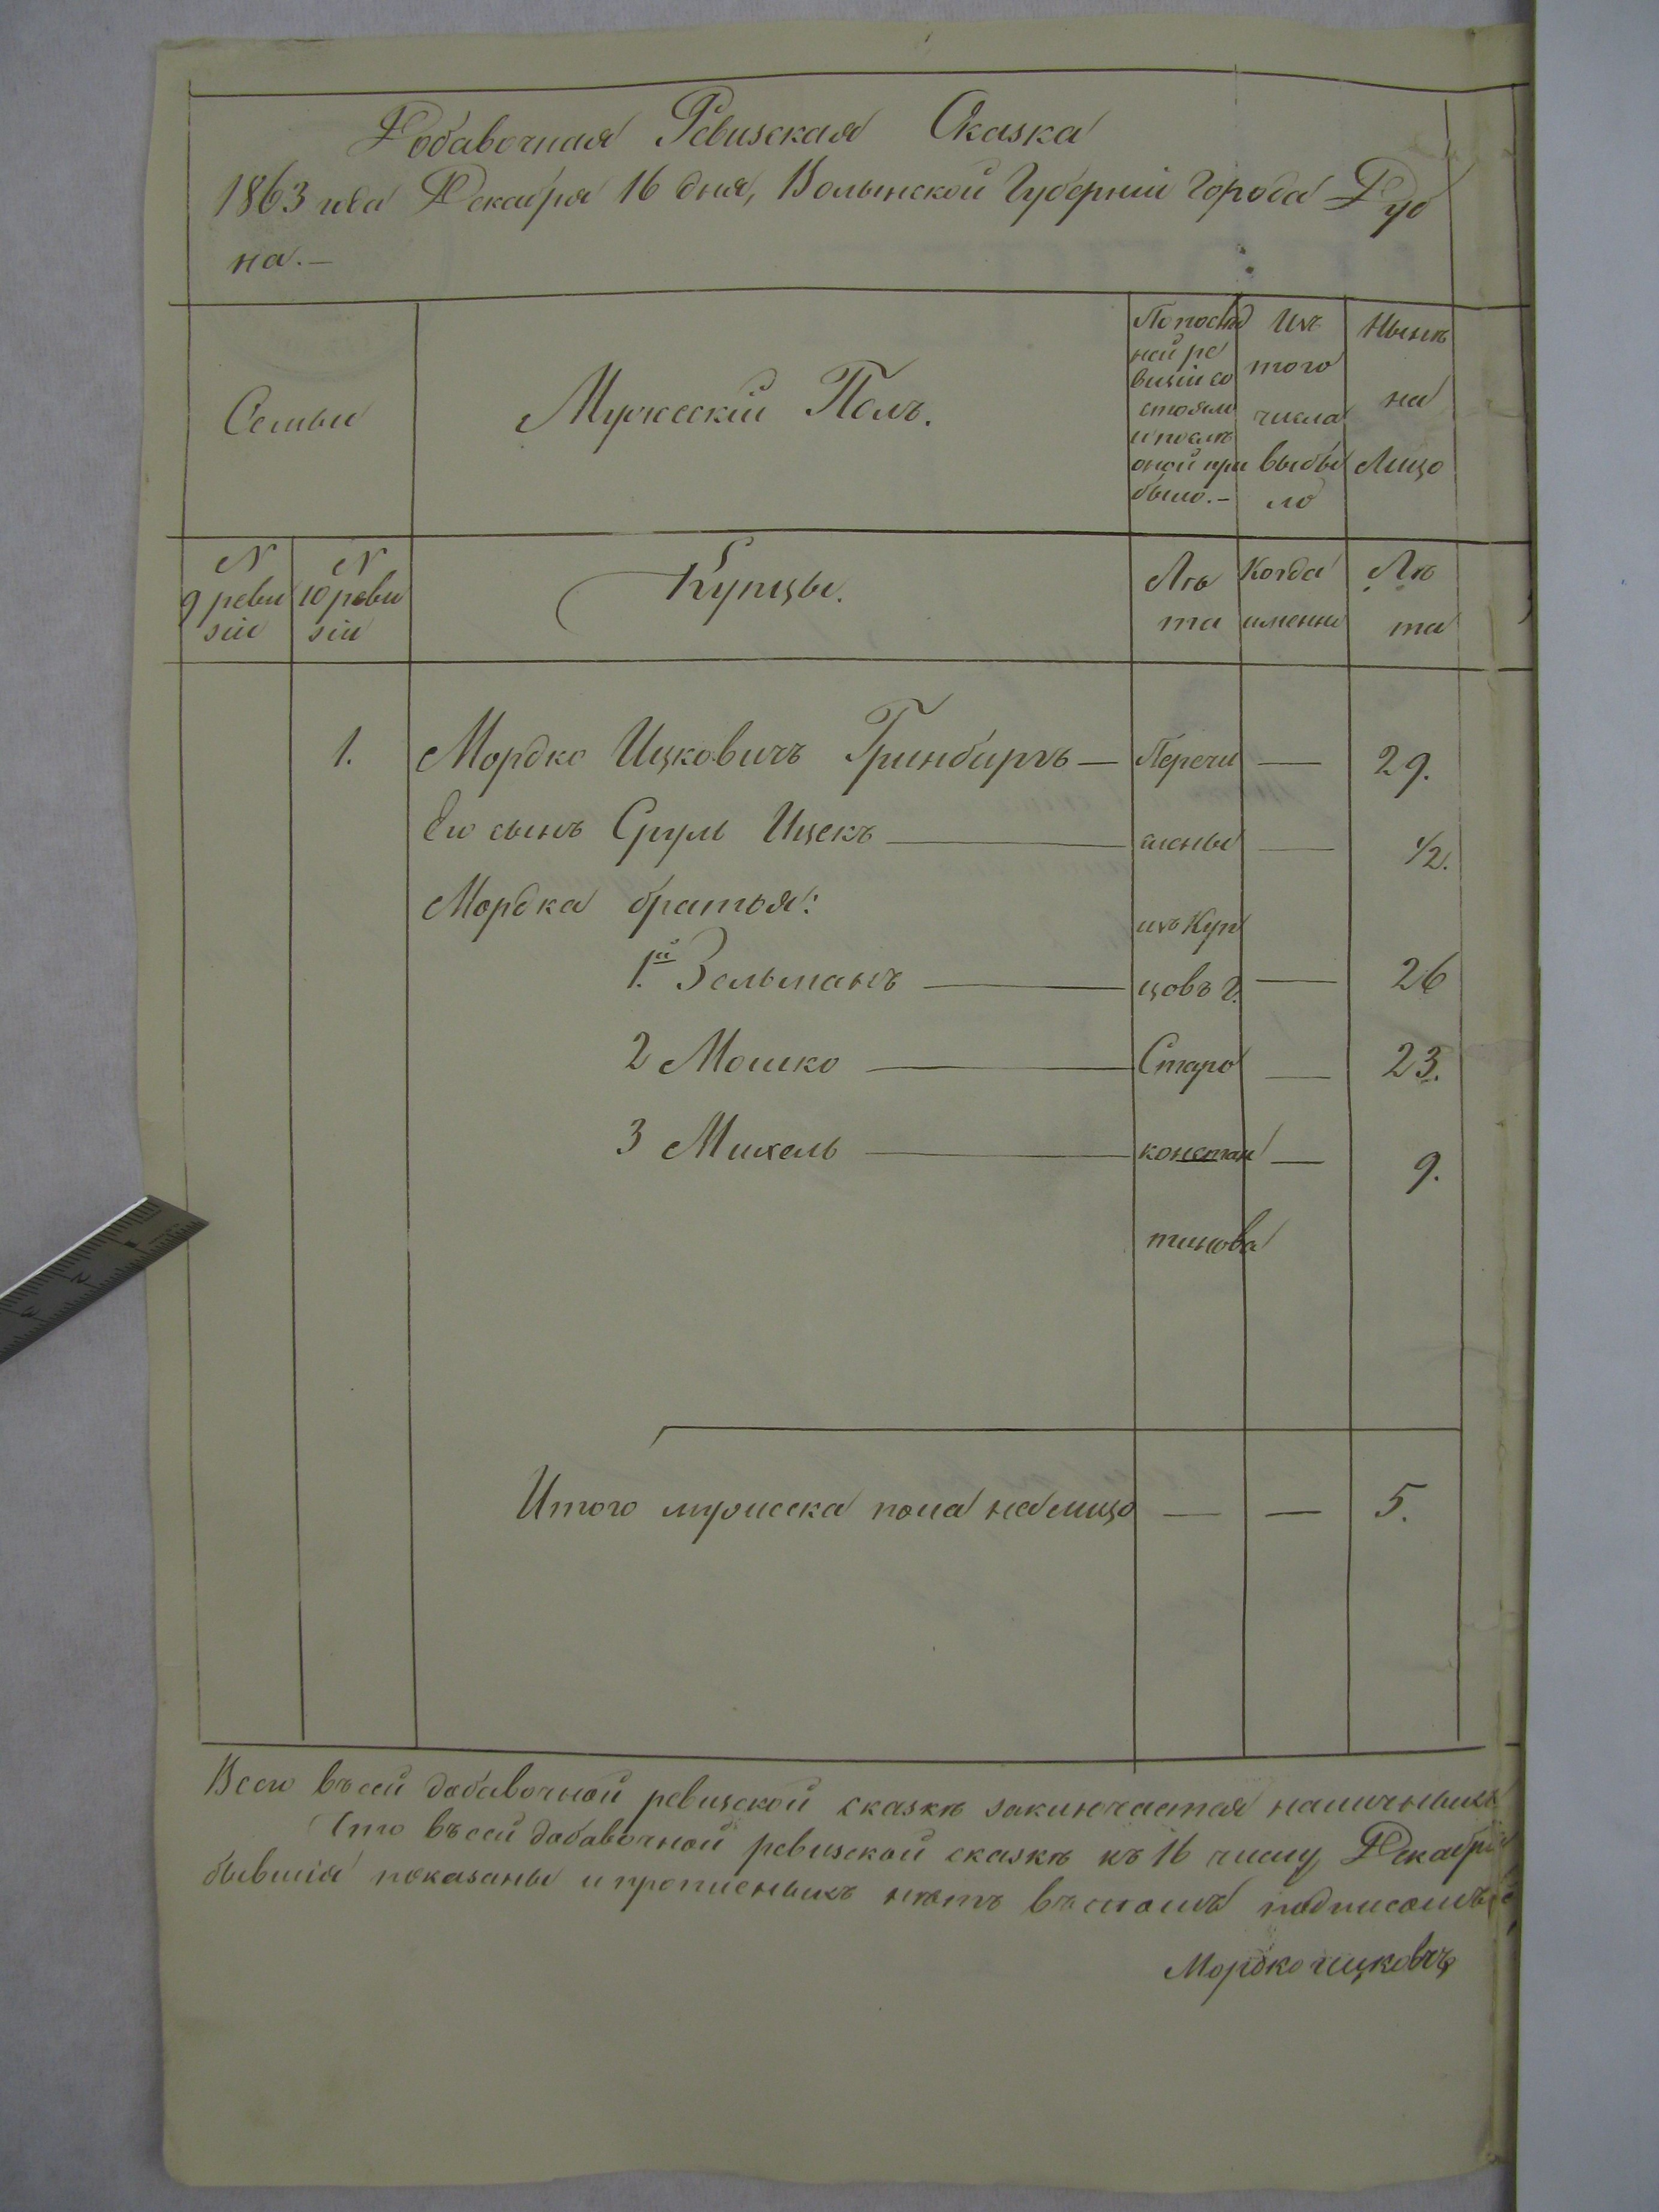 Добавочная Ревизская Сказка
1863 года Декабря 16 дня, Волынской Губерніи Города Дуб
на.—
Семьи
Мужескій Полъ.
По послѣд
ней ре
визіи со
стояло
и послѣ
оной при
было.—
Изъ
того
числа
выбы
ло
Нынѣ
на
Лицо
N
9 реви
зіи
N
10 реви
зіи
Купцы.
Лѣ
та
Когда
именно
Лѣ
та
1. Мордко Ицковичъ Гринбергъ — Перечи — 29.
Его сынъ Сруль Ицекъ — слены — 1/2.
Мордка братья: изъ Куп
1.й Зельманъ — цовъ г. — 26
2 Мошко — Старо — 23.
3 Михель — констан — 9.
тинова
Итого мужеска пола на лицо — — 5.
Всего въ сей добавочной ревизской сказкѣ заключается наличныхъ
Что въ сей добавочной ревизской сказкѣ къ 16 числу Декабря
бывшія показаны и прописныхъ нѣтъ въ томъ подписомъ
Мордко ицковичъ